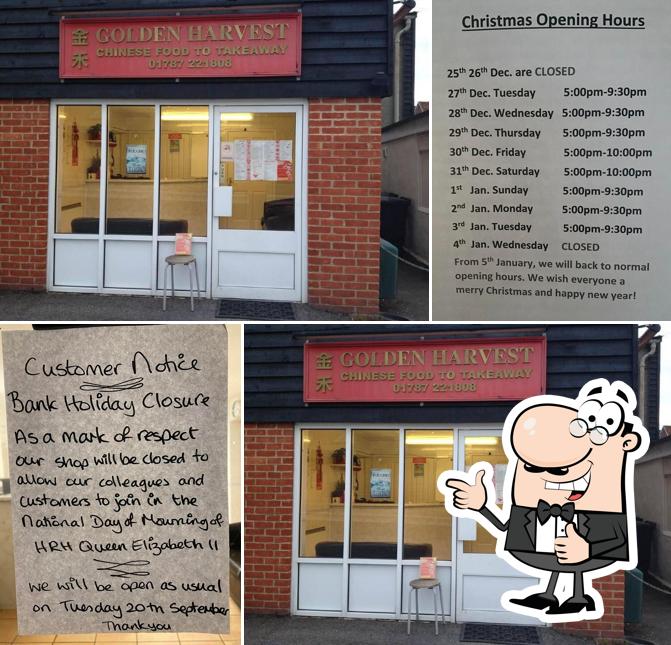 金禾
GOLDEN HARVEST
CHINESE FOOD TO TAKEAWAY
01787 221808
Christmas Opening Hours
25th 26th Dec. are CLOSED
27th Dec. Tuesday 5:00pm-9:30pm
28th Dec. Wednesday 5:00pm-9:30pm
29th Dec. Thursday 5:00pm-9:30pm
30th Dec. Friday 5:00pm-10:00pm
31th Dec. Saturday 5:00pm-10:00pm
1st Jan. Sunday 5:00pm-9:30pm
2nd Jan. Monday 5:00pm-9:30pm
3rd Jan. Tuesday 5:00pm-9:30pm
4th Jan. Wednesday CLOSED
From 5th January, we will back to normal
opening hours. We wish everyone a
merry Christmas and happy new year!
Customer Notice
Bank Holiday Closure
As a mark of respect
our shop will be closed to
allow our colleagues and
customers to join in the
National Day of Mourning of
HRH Queen Elizabeth II
We will be open as usual
on Tuesday 20th September
Thankyou
金禾
GOLDEN HARVEST
CHINESE FOOD TO TAKEAWAY
01787 221808